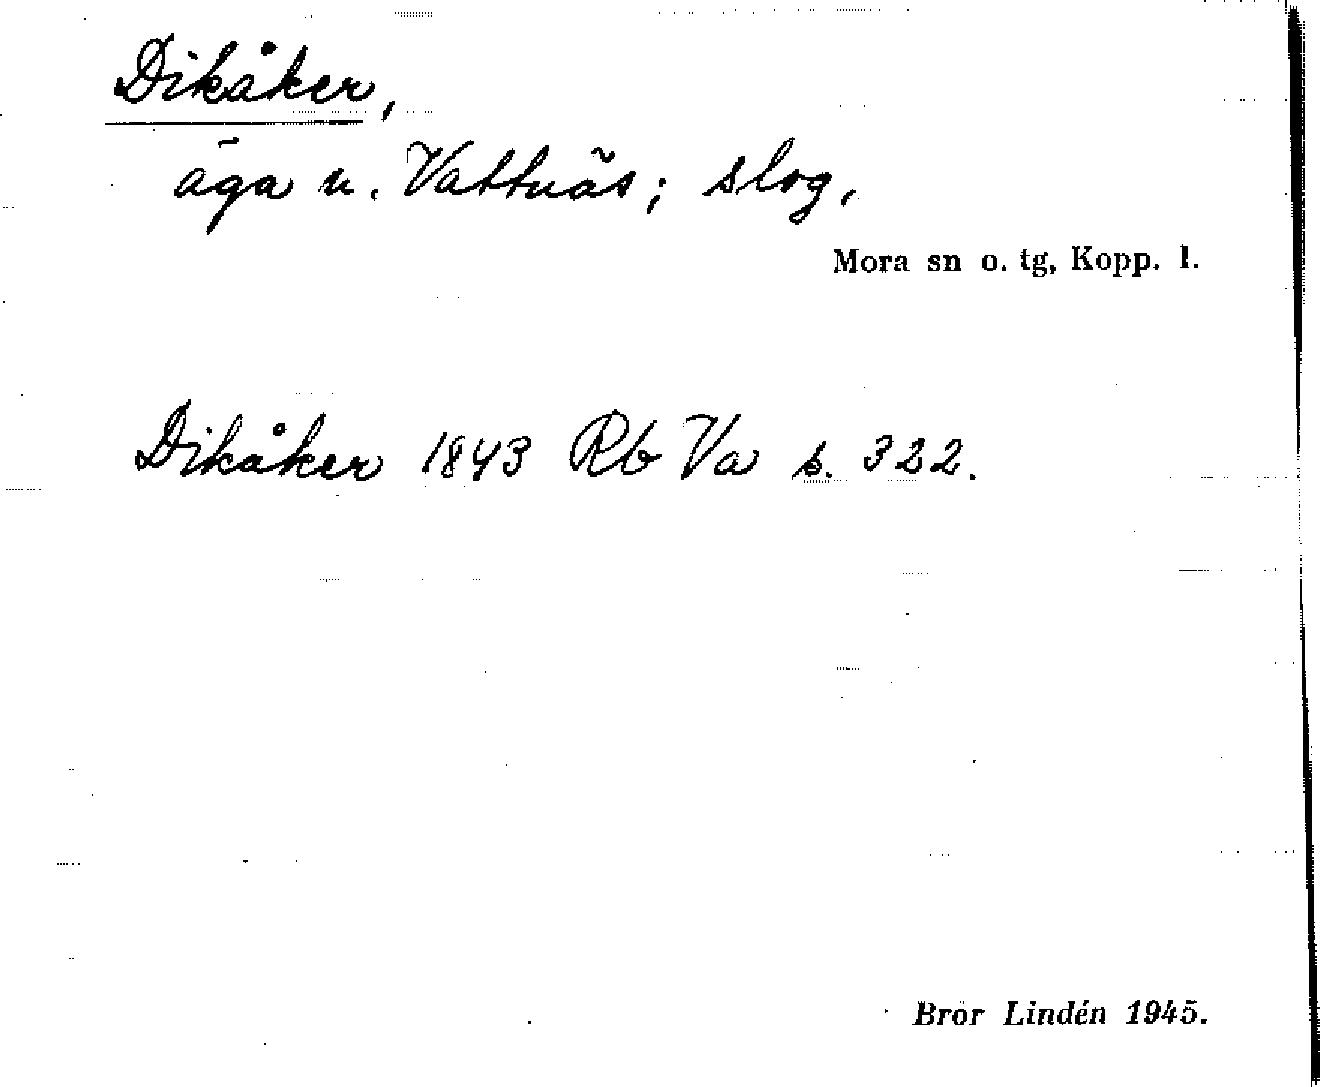 Dikåker,
äga u. Vattnäs; slog.
Mora sn o. tg, Kopp. l.
Dikåker 1843 Rb Va s. 322.
Bror Lindén 1945.